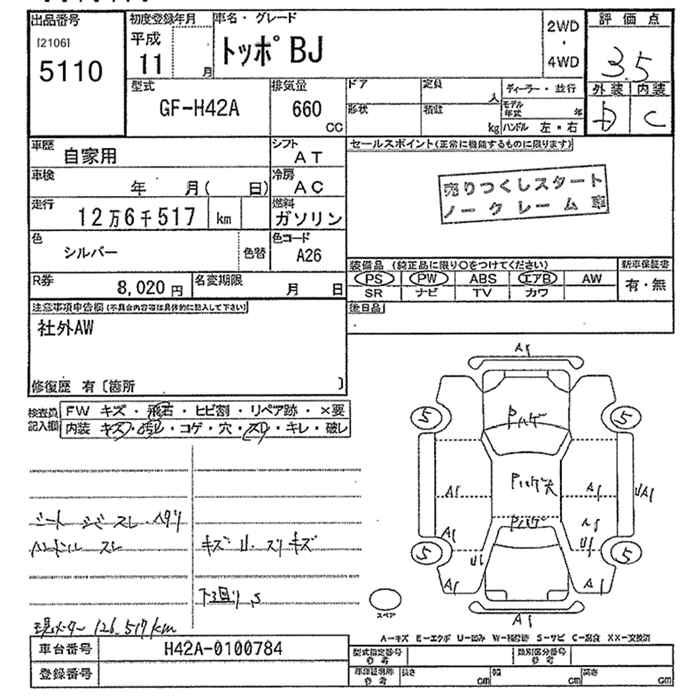 出品番号
[2106]
5110
初度登録年月
平成
11 月
車名・グレード
トッポBJ
2WD
・
4WD
評価点
3.5
外装 内装
D C
型式
GF-H42A
排気量
660
CC
ドア
定員
人
ディーラー・並行
形状
積載
kg
モデル年式
年
ハンドル 左・右
車歴
自家用
シフト
AT
車検
年 月( 日)
冷房
AC
走行
12万6千517 km
燃料
ガソリン
色
シルバー
色替
色コード
A26
R券
8,020円
名変期限
月 日
セールスポイント(正常に機能するものに限ります)
売りつくしスタート
ノークレーム
装備品(純正品に限り〇をつけてください)
新車保証書
PS PW ABS エアB AW
SR ナビ TV カワ
有・無
後日品
注意事項申告欄(不具合内容等は具体的に記入して下さい)
社外AW
修復歴 有〔箇所 〕
検査員記入欄
FW キズ・飛石・ヒビ割・リペア跡・×要
内装 キズ・汚レ・コゲ・穴・スレ・キレ・破レ
シート シミ スレ ヘタリ
ハンドル スレ
キズ U スリキズ
下回り S
現メーター 126,517km
A1
5
5
Pハゲ
Pハゲ大
Pハゲ
A1
A1
UA1
A1
A1
U1
U1
5
5
A1
A1
A1
スペア
A-キズ E-エクボ U-凹み W-補修跡 S-サビ C-腐食 XX-交換済
車台番号
H42A-0100784
登録番号
型式指定番号
参考
類別区分番号
参考
車検証明称
参考
長さ cm
幅 cm
高さ cm